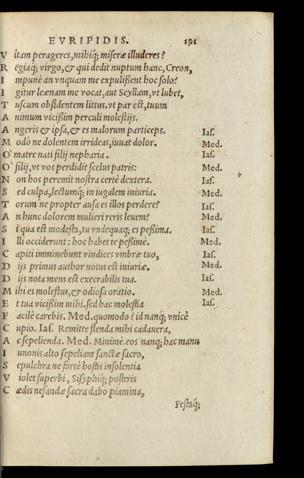 EVRIPIDIS. 191
V itam perageres, mihiq́; miseræ illuderes?
R egiaq́; virgo, & qui dedit nuptum hanc, Creon,
I mpunè an vnquam me expulissent hoc solo?
I gitur leænam me vocat, aut Scyllam, vt lubet,
T uscum obsidentem littus. vt par est, tuum
A nimum vicissim perculi molestijs.
A ngeris & ipsa, & es malorum particeps. Ias.
M odò ne dolentem irrideas, iuuat dolor. Med.
O' matre nati filij nepharia. Ias.
O' filij, vt vos perdidit scelus patris: Med.
N on hos peremit nostra certè dextera. Ias.
S ed culpa, lectumq́; in iugalem iniuria. Med.
T orum ne propter ausa es illos perdere? Ias.
A n hunc dolorem mulieri reris leuem? Med.
S i qua est modesta, tu vndequaq; es peßima. Ias.
I lli occiderunt: hoc habet te peßimè. Med.
C apiti imminebunt vindices vmbræ tuo, Ias.
D ijs primus author notus est iniuriæ. Med.
D ijs nota mens est execrabilis tua. Ias.
M ihi es molestus, & odiosa oratio. Med.
E t tua vicissim mihi. sed hac molestia Ias.
F acilè carebis. Med. quomodo? id nanq́; vnicè
C upio. Ias. Remitte flenda mihi cadauera,
A c sepelienda. Med. Minimè. eos nanq; hac manu
I unonis alto sepeliam sanctæ sacro,
S epulchra ne fortè hostis insolentia
V iolet superbi, Sisyphiq́; posteris
C ædis nefandæ sacra dabo piamina,
Festaq́;